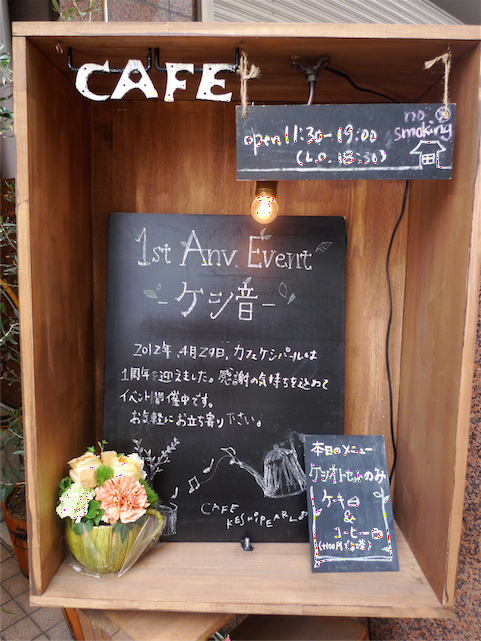 CAFE
open 11:30-19:00
(L.O. 18:30)
no
smoking
1st Anv. Event
-ケシ音-
2012年、4月29日、カフェケシパールは
1周年を迎えました。感謝の気持ちを込めて
イベント開催中です。
お気軽にお立ち寄り下さい。
CAFE
KESHiPEARL
本日のメニュー
ケシオトセットのみ
ケーキ
&
コーヒー